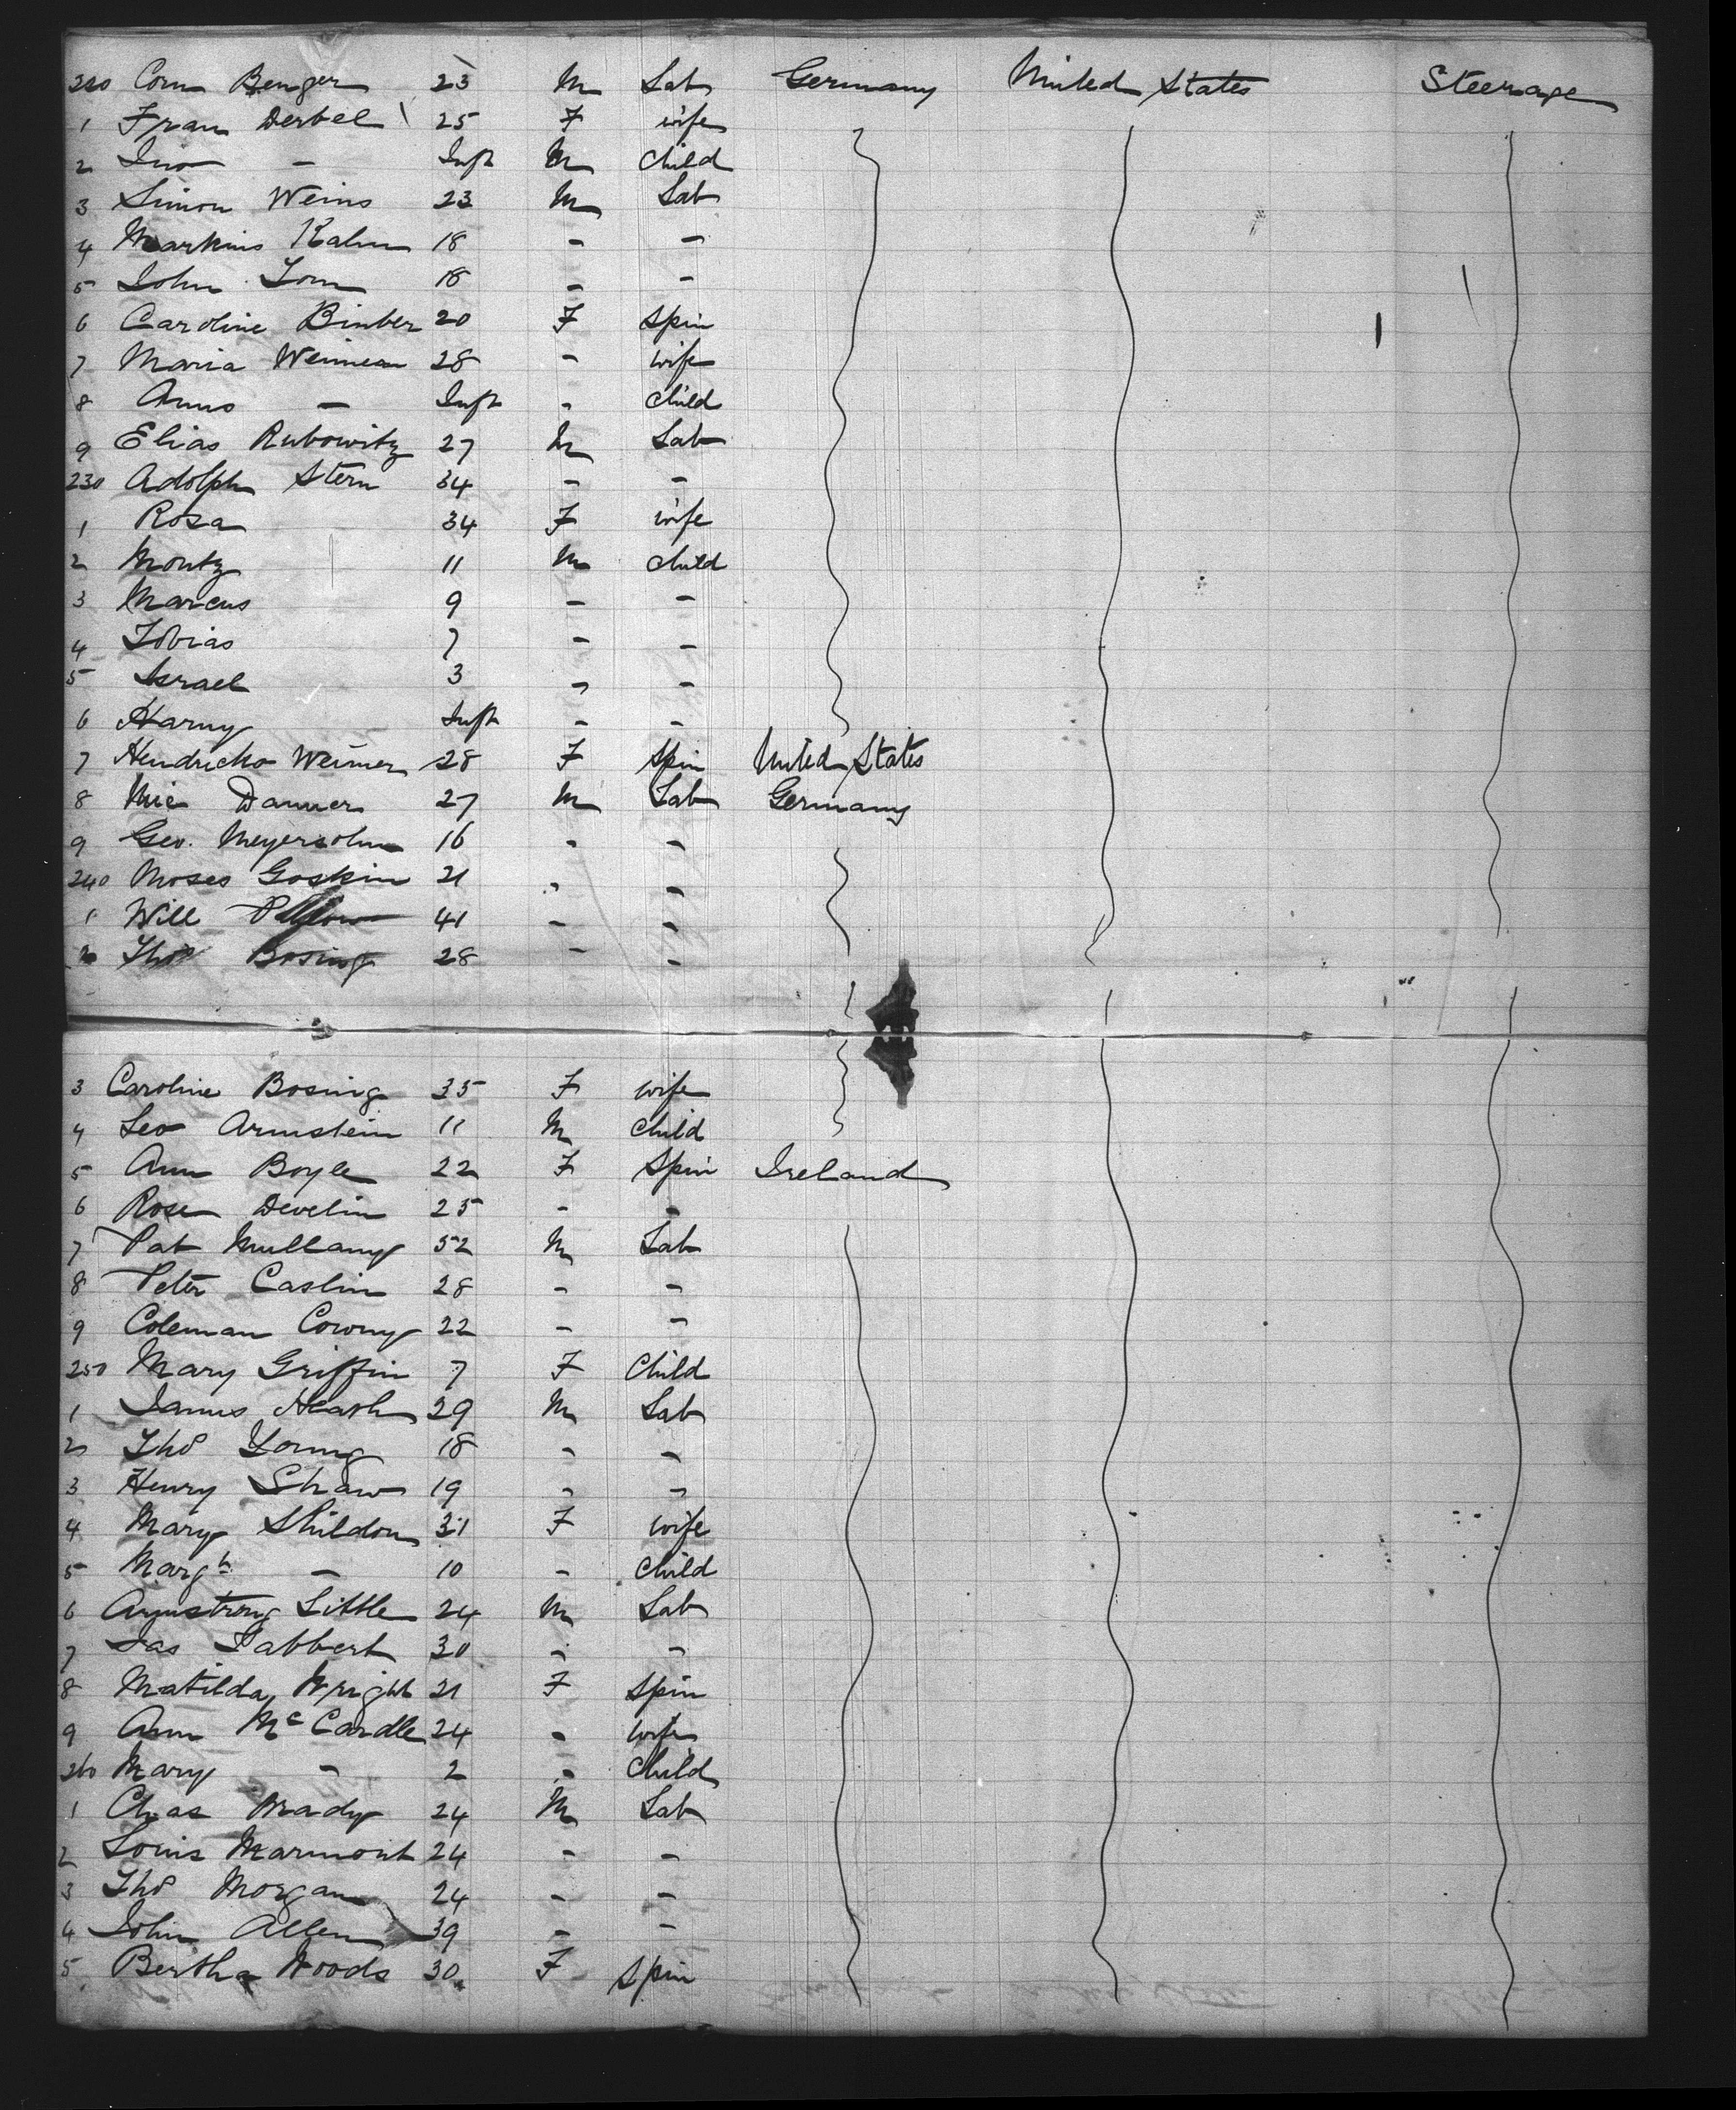 220 Corn Benger 23 M Lab Germany United States Steerage
1 Fran Derbel 25 F wife
2 Ino - Inft M Child
3 Simon Weins 23 M Lab
4 Markus Kalm 18 - -
5 John Tom 18 - -
6 Caroline Binber 20 F Spin
7 Maria Weimean 28 - wife
8 Anns - Inft - Child
9 Elias Rubowitz 27 M Lab
230 Adolph Stern 34 - -
1 Rosa 34 F wife
2 Moritz 11 M child
3 Marcus 9 - -
4 Tobias 7 - -
5 Israel 3 - -
6 Harny Inft - -
7 Hendricka Weimer 28 F Spin United States
8 Mic Danner 27 M Lab Germany
9 Geo. Meyersohn 16 - -
240 Moses Goskin 21 - -
1 Will 41 - -
2 Thos Bosing 28 - -
3 Caroline Bosing 35 F wife
4 Leo Armstein 11 M Child
5 Ann Boyle 22 F Spin Ireland
6 Rose Develin 25 - -
7 Pat Mullany 52 M Lab
8 Peter Caslin 28 - -
9 Coleman Cowny 22 - -
250 Mary Griffin 7 F Child
1 James Heash 29 M Lab
2 Thos Young 18 - -
3 Henry Shaw 19 - -
4 Mary Shildon 31 F wife
5 Margt - 10 - child
6 Armstrong Little 24 M Lab
7 Jas Tabbert 30 - -
8 Matilda Wright 21 F Spin
9 Ann McCardle 24 - wife
260 Mary - 2 - Child
1 Chas Brady 24 M Lab
2 Louis Marmont 24 - -
3 Thos Morgan 24 - -
4 John Allen 39 - -
5 Bertha Woods 30 F Spin